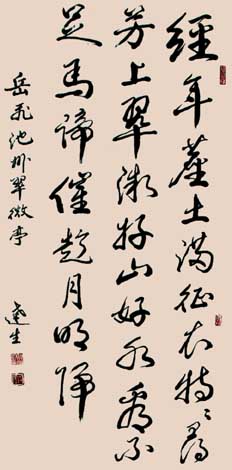 經年塵土滿征衣特特尋
芳上翠微好山好水看不
足馬蹄催趁月明歸
岳飛池州翠微亭
逵生